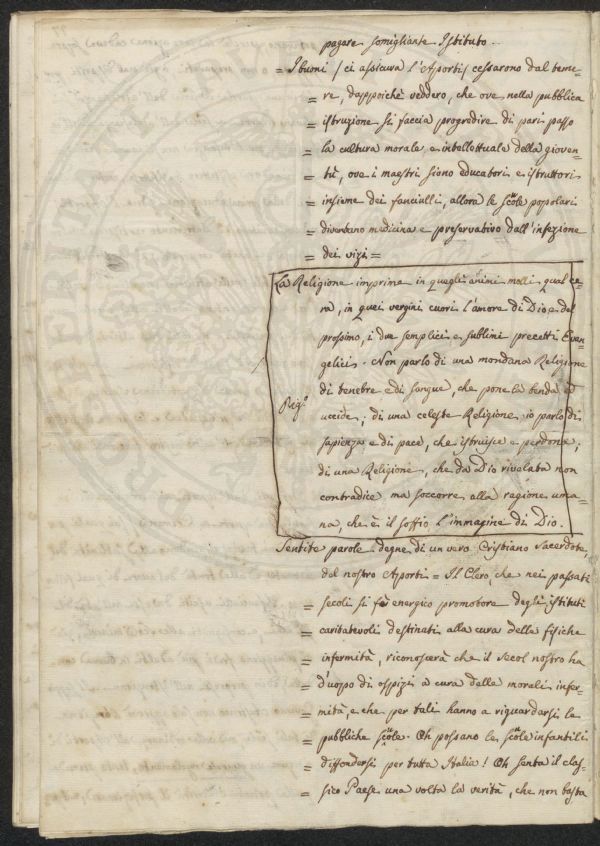 pagare somigliante Istituto.
= I buoni / ci assicura l'Aporti / cessarono dal teme-
= re, dappoichè veddero, che ove nella pubblica
= istruzione si faccia progredire di pari passo
= la cultura morale e intellettuale della gioven-
= tù, ove i maestri siono educatori e istruttori
= insieme dei fanciulli, allora le scuole popolari
= diventano medicina e preservativo dall'infezione
= dei vizi =
La Religione imprime in quegli animi molli qual ce-
ra, in quei vergini cuori l'amore di Dio e del
prossimo, i due semplici e sublimi precetti Evan-
gelici. Non parlo di una mondana Religione
di tenebre e di sangue, che pone la benda ed
uccide; di una celeste Religione io parlo di
sapienza e di pace, che istruisce e perdona;
di una Religione, che da Dio rivelata non
contradice ma soccorre alla ragione uma-
na, che è il soffio l'immagine di Dio.
Sentite parole degne di un vero Cristiano Sacerdote,
del nostro Aporti = Il Clero, che nei passati
= secoli si fè energico promotore degli istituti
= caritatevoli destinati alla cura delle fisiche
= infermità, riconoscerà che il secol nostro ha
= d'uopo di ospizi a cura delle morali infer-
= mità, e che per tali hanno a riguardarsi le
= pubbliche scuole. Oh possano le scuole infantili
= diffondersi per tutta Italia! Oh senta il clas-
= sico Paese una volta la verità, che non basta